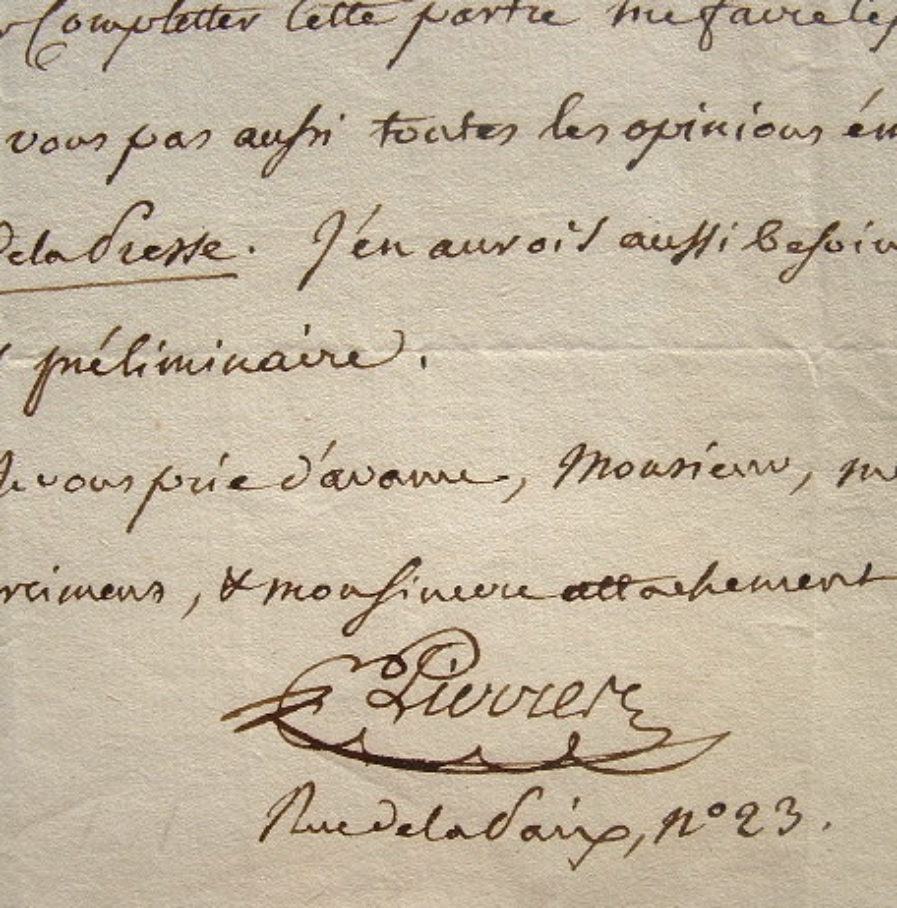 Completter cette partie me faire
vous pas aussi toutes les opinions ém
De la Presse. J'en aurois aussi besoin
préliminaire.
Je vous prie d'avance, Monsieur,
rcimens, & mon sincere attachement
Rue de la Paix, n° 23.